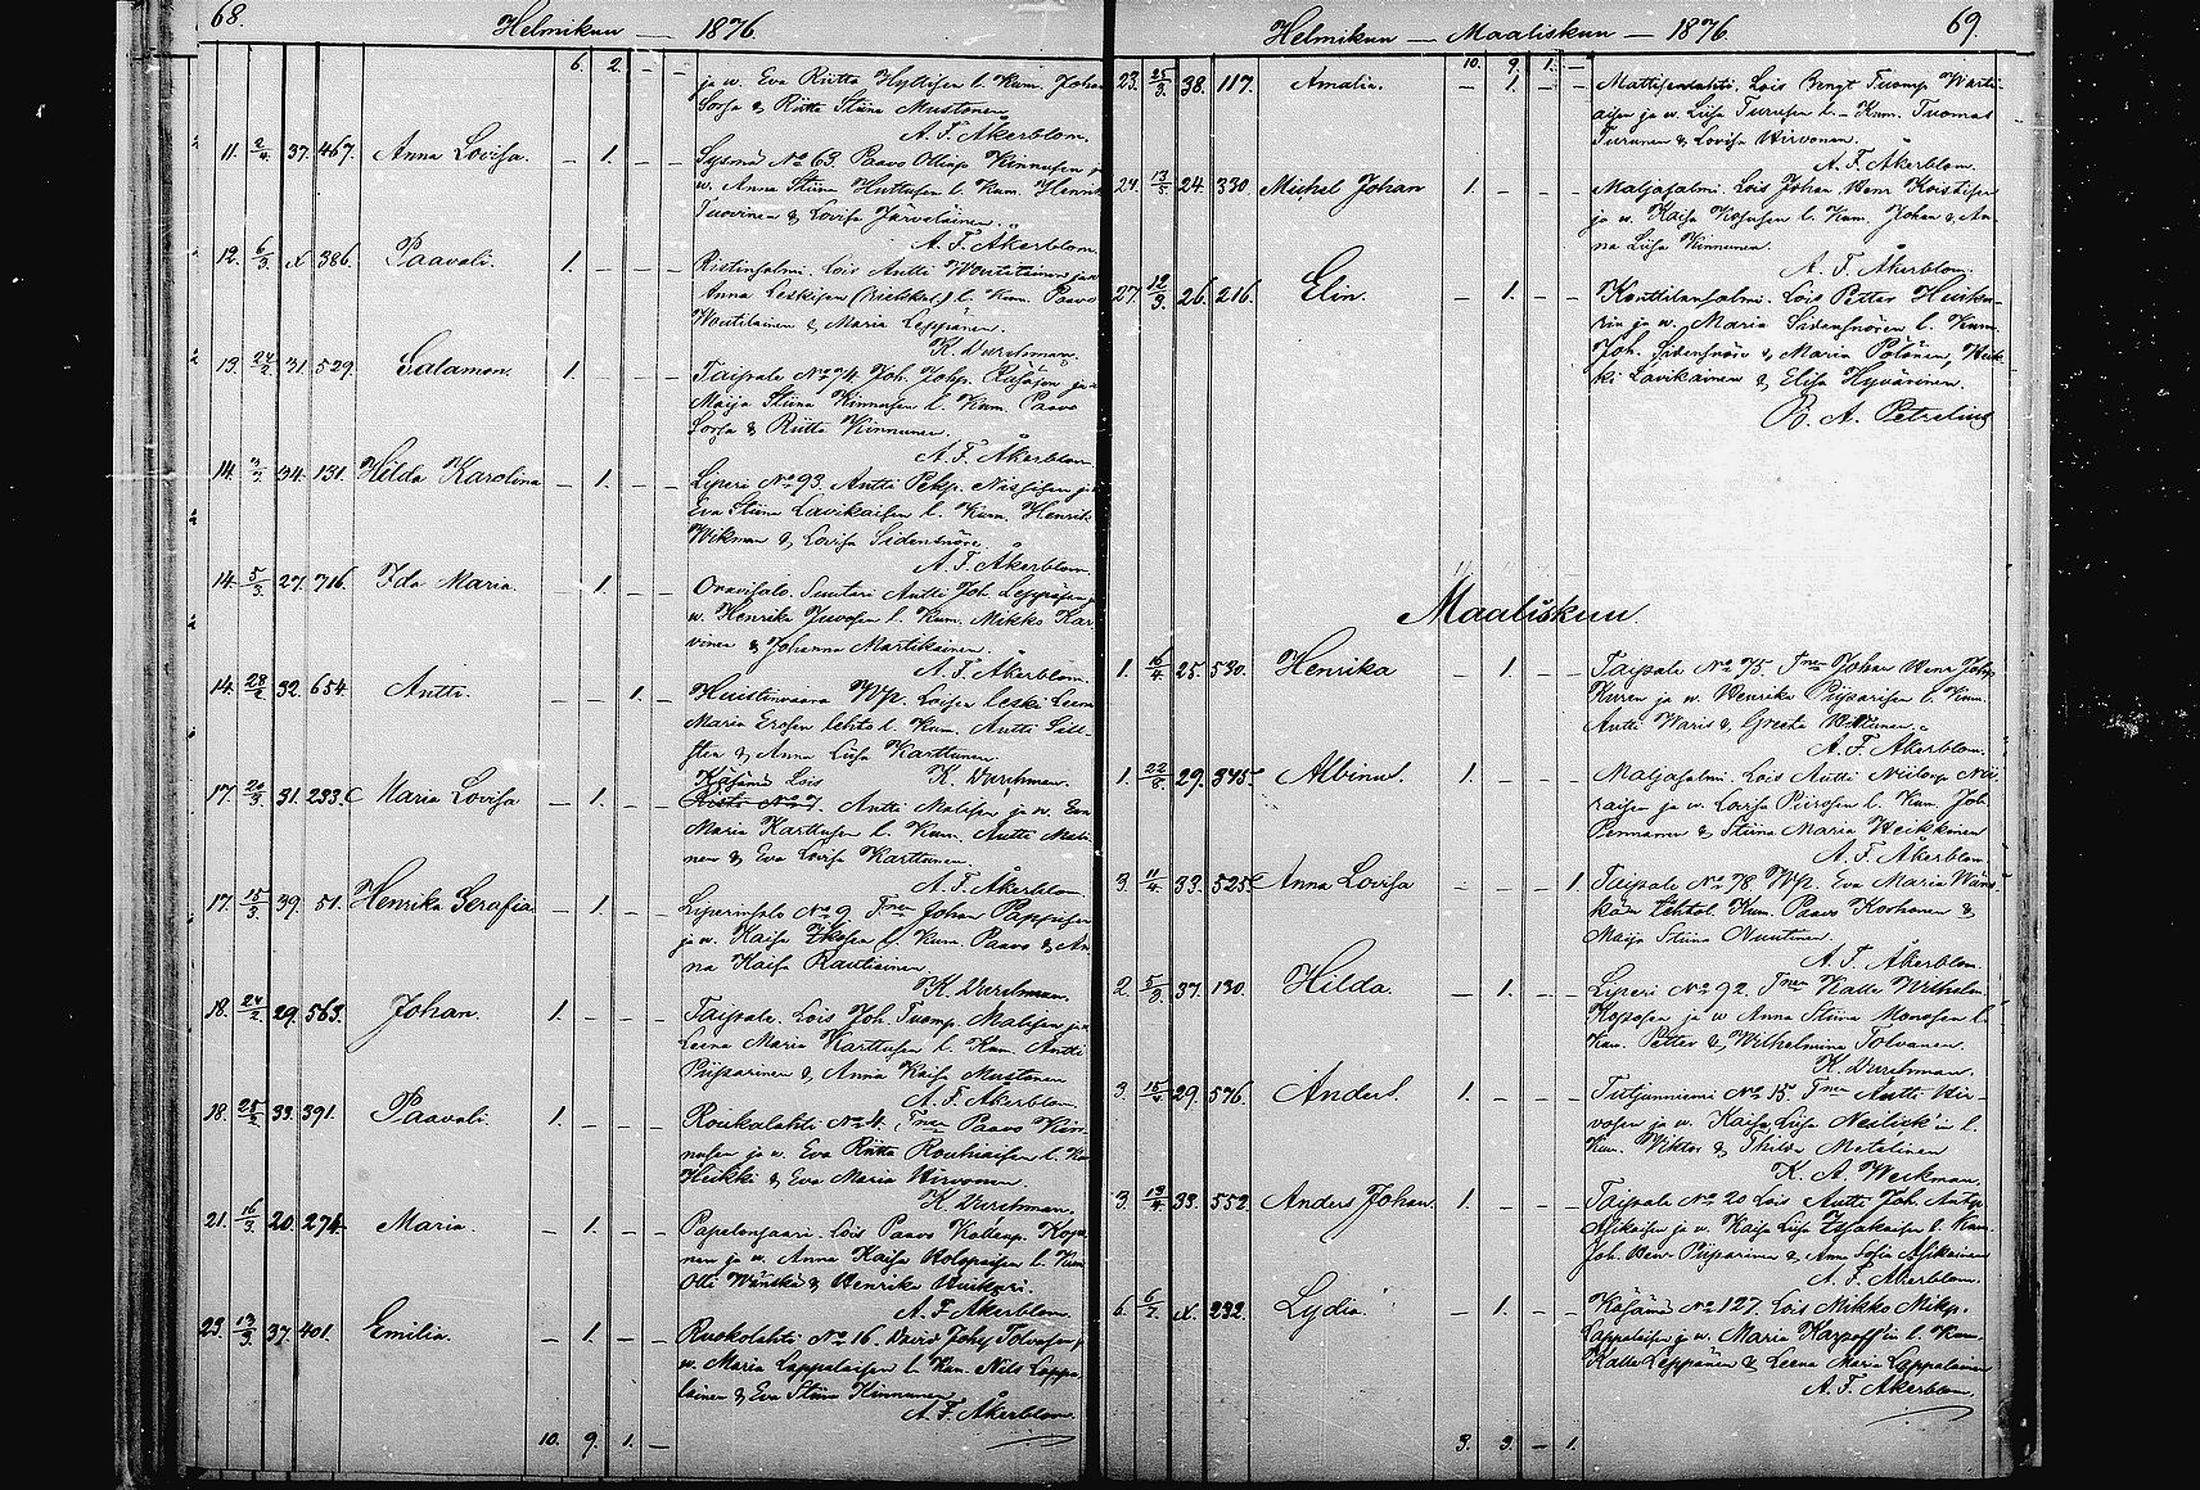 68.
Helmikuu — 1876.
6. 2. – –
ja w. Eva Riitta Hyttisen l. Kum. Johan
Sorsa & Riitta Stiina Mustonen
A. F. Åkerblom.
11. 2/4. 37. 467. Anna Lovisa. – 1. – – Sysmä No 63. Paavo Ollinp. Kinnusen ja
w. Anna Stiina Huttusen l. Kum. Henrik
Tuovinen & Lovisa Järveläinen.
A. F. Åkerblom.
12. 6/3. x 386. Paavali. 1. – – – Ristinsalmi. Lois Antti Woutilainen ja w
Anna Leskisen l. Kum. Paavo
Woutilainen & Maria Leppänen.
K. Durchman.
13. 24/2. 31. 529. Salamon. 1. – – – Taipale No 74. Joh. Johp. Räsäsen ja w
Maija Stiina Kinnusen l. Kum. Paavo
Sorsa & Riitta Kinnunen.
A. F. Åkerblom.
14. 34. 131. Hilda Karolina – 1. – – Liperi No 93. Antti Pekp. Nissisen ja w
Eva Stiina Lavikaisen l. Kum. Henrik
Wikman & Lovisa Sidensnöre.
A. F. Åkerblom.
14. 5/3. 27. 716. Ida Maria. – 1. – – Oravisalo. Suutari Antti Joh. Leppäsen ja
w. Henrika Juvosen l. Kum. Mikko Kar-
vinen & Johanna Martikainen.
A. F. Åkerblom.
14. 28/2. 32. 654. Antti. – – 1. – Huistinvaara Wp. Loisen leski Leena
Maria Erosen lehto l. Kum. Antti Sill-
sten & Anna Liisa Karttunen.
Käsämä Lois K. Durchman.
17. 20/3. 31. 233. Maria Lovisa – 1. – – Risti No 7. Antti Malisen ja w. Eva
Maria Karttusen l. Kum. Antti Mali-
nen & Eva Lovisa Karttunen.
A. F. Åkerblom
17. 15/3. 39. 51. Henrika Serafia – 1. – – Liperinsalo No 9. Tnen Johan Pappisen
ja w. Kaisa l. Kum. Paavo & An-
na Kaisa Rautiainen.
K. Durchman.
18. 24/2. 29. 563. Johan. 1. – – – Taipale. Lois Joh. Tuomp. Malisen ja w
Leena Maria Karttusen l. Kum. Antti
Piiparinen & Anna Kaisa Mustonen
A. F. Åkerblom.
18. 33. 391. Paavali. 1. – – – Roukalahti No 4. Tnen Paavo Kin-
nusen ja w. Eva Riitta Rouhiaisen l. Ku
Heikki & Eva Maria Hirvonen.
K. Durchman.
21. 16/3. 20. 274. Maria. – 1. – – Papelonsaari. Lois Paavo Kallenp. Kopo
nen ja w. Anna Kaisa Holopaisen l. Kum
Olli Wänskä & Henrika Huikuri.
A. F. Åkerblom.
23. 13/3. 37. 401. Emilia. – 1. – – Ruokolahti No 16. David Johp Tolvasen ja
w. Maria Lappalaisen l. Kum. Nils Lappa
lainen & Eva Stiina Kinnunen
A. F. Åkerblom.
10. 9. 1. –
Helmikuu — Maaliskuu — 1876.
69.
10. 9. 1. –
23. 25/3. 38. 117. Amalia. – 1. – – Mattisenlahti. Lois Bengt Tuomp Warti-
aisen ja w. Liisa Turusen l. – Kum. Tuomas
Turunen & Lovisa Hirvonen.
A. F. Åkerblom.
24. 13/5. 24. 330. Michel Johan 1. – – – Maljasalmi. Lois Johan Henr Koistisen
ja w. Kaisa Kosusen l. Kum. Johan & An-
na Liisa Kinnunen.
A. F. Åkerblom.
27. 12/3. 26. 216. Elin. – 1. – – Konttilansalmi. Lois Petter Huiku-
rin ja w. Maria Sidensnören l. Kum.
Joh. Sidensnöre & Maria Pölönen, Heik-
ki Lavikainen & Elisa Hyvärinen.
B. A. Petrelius
Maaliskuu.
1. 16/4. 25. 530. Henrika – 1. – – Taipale No 75. Tnen Johan Henr Johp
Kuren ja w. Henrika Piiparisen l. Kum.
Antti Waris & Greeta
A. F. Åkerblom.
1. 22/8. 29. 345. Albinus. 1. – – – Maljasalmi. Lois Antti Niilonp Nii-
raisen ja w. Lovisa Piirosen l. Kum. Joh.
Pennanen & Stiina Maria Heikkinen
A. F. Åkerblom.
3. 11/4. 33. 525. Anna Lovisa – – – 1. Taipale No 78. Wp. Eva Maria Wäns-
kän lehtol. Kum. Paavo Korhonen &
Maija Stiina Nuutinen.
A. F. Åkerblom.
2. 5/3. 37. 130. Hilda. – 1. – – Liperi No 92. Tnen Kalle Wilhelm
Koposen ja w Anna Stiina Monosen l.
Kum. Petter & Wilhelmina Tolvanen.
K. Durchman.
3. 29. 576. Anders. 1. – – – Tutjunniemi No 15. Tnen Antti Hir-
vosen ja w. Kaisa Liisa Neilick'in l.
Kum. Viktor & Thilda Metalinen
K. A. Weckman.
3. 13/4. 33. 552. Anders Johan. 1. – – – Taipale No 20 Lois Antti Joh. Antp
Asikaisen ja w. Kaisa Liisa l. Kum.
Joh. Henr Piiparinen & Anna Sofia Asikainen
A. F. Åkerblom.
6. x. 232. Lydia. – 1. – – Käsämä No 127. Lois Mikko Mikp.
Lappalaisen ja w. Maria Karpoff'in l. Kum.
Kalle Leppänen & Leena Maria Lappalainen
A. F. Åkerblom.
3. 3. – 1.